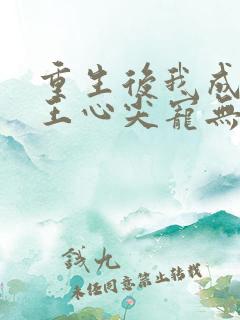 重生後我成
王心尖寵無
錢九
未經同意禁止轉載